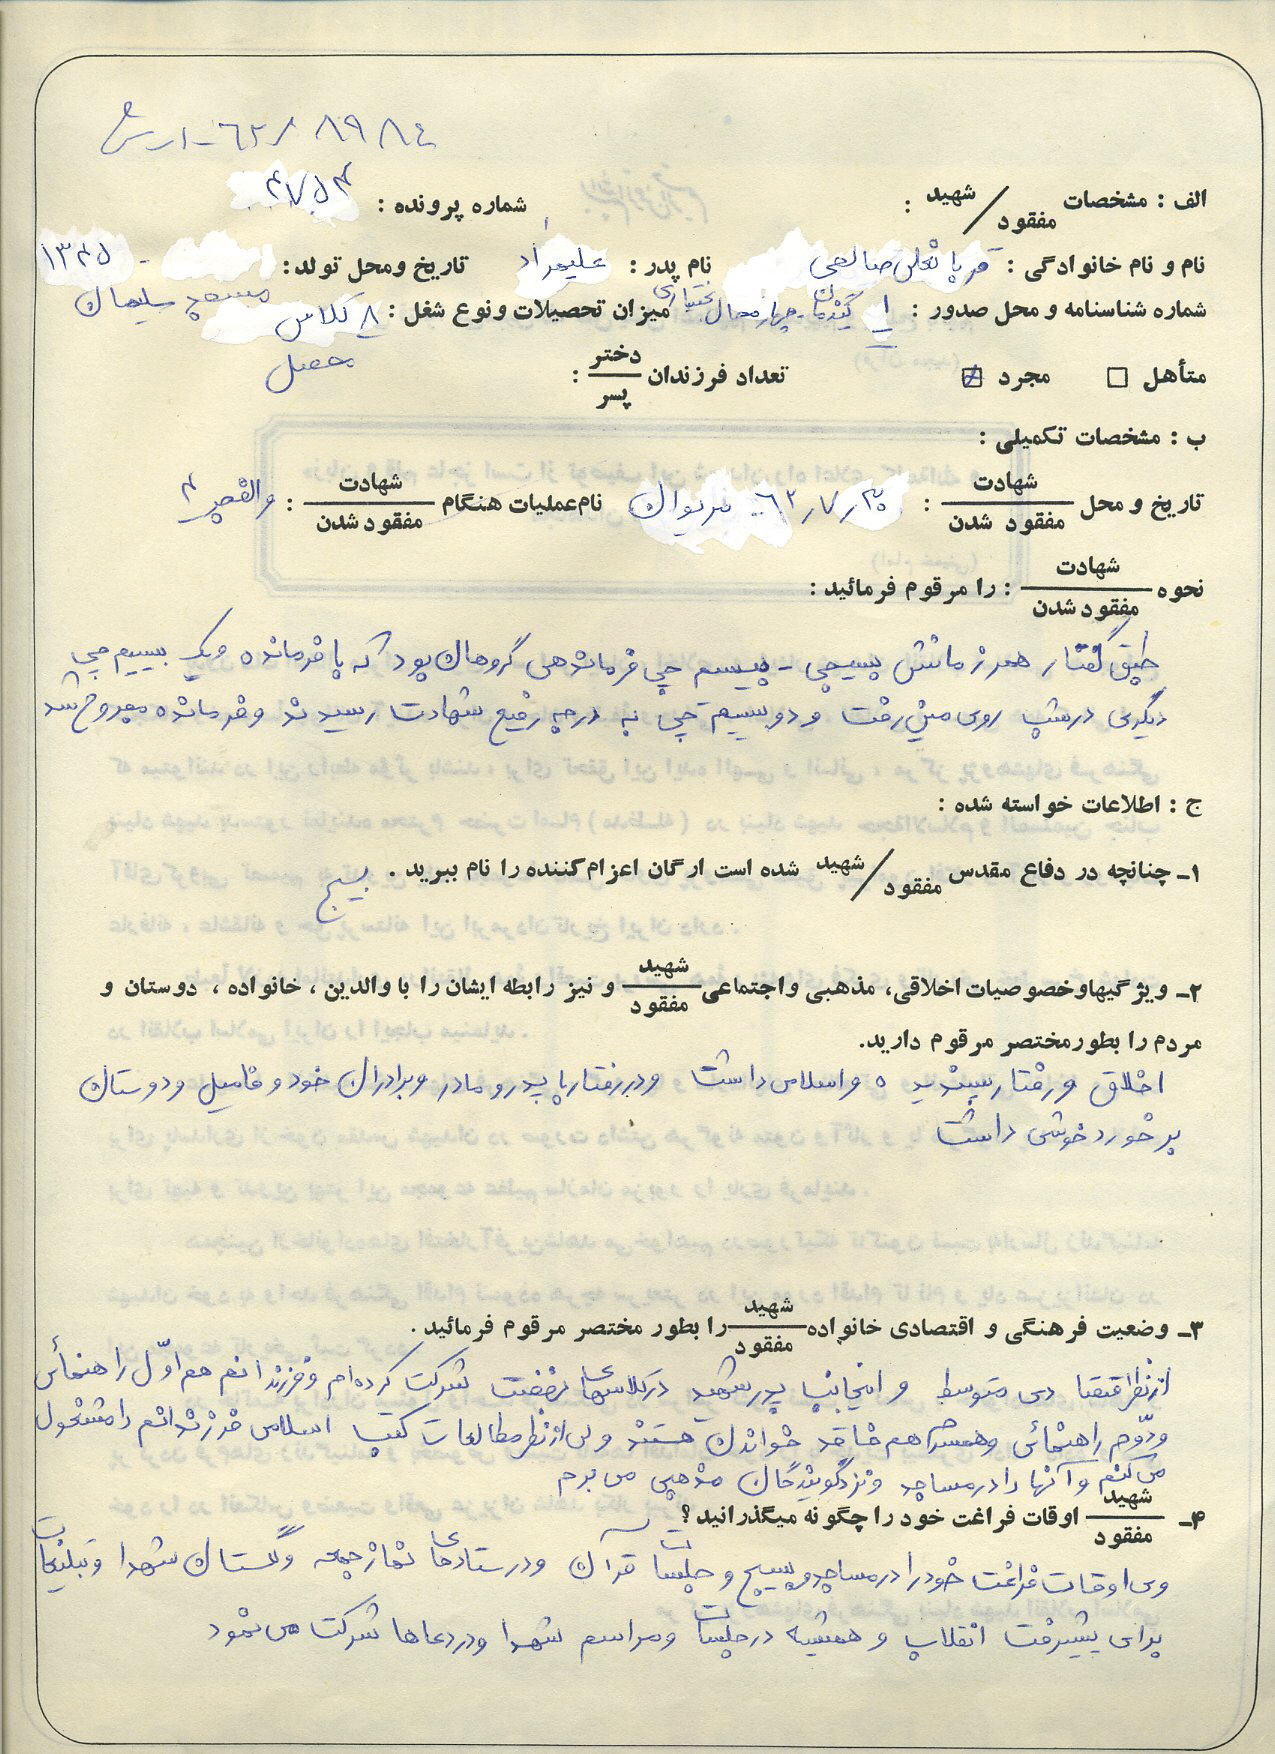 ۶۲/۸۹۸۴ - ارس
الف : مشخصات شهید / مفقود :
شماره پرونده : ۴۷۵۳
نام و نام خانوادگی : قربانعلی صالحی نام پدر : علیمراد تاریخ ومحل تولد : ۱۳۴۵ - مسجد سلیمان
شماره شناسنامه و محل صدور : ۱ گندمان چهارمحال بختیاری میزان تحصیلات ونوع شغل : ۸ کلاس محصل
متأهل □ مجرد ☒ تعداد فرزندان دختر / پسر :
ب : مشخصات تکمیلی :
تاریخ و محل شهادت / مفقود شدن : ۶۲/۷/۳۰ - مریوان نام عملیات هنگام شهادت / مفقود شدن : والفجر ۴
نحوه شهادت / مفقود شدن : را مرقوم فرمائید :
طبق گفتار همرزمانش بسیجی - بیسیم چی فرماندهی گروهان بود که با فرمانده ویک بیسیم چی
دیگری درشب روی مین رفت و دو بیسیم چی به درجه رفیع شهادت رسیدند و فرمانده مجروح شد
ج : اطلاعات خواسته شده :
۱- چنانچه در دفاع مقدس شهید / مفقود شده است ارگان اعزام کننده را نام ببرید . بسیج
۲- ویژگیها وخصوصیات اخلاقی، مذهبی واجتماعی شهید / مفقود و نیز رابطه ایشان را با والدین ، خانواده ، دوستان و
مردم را بطور مختصر مرقوم دارید.
اخلاق و رفتار پسندیده و اسلامی داشت و در رفتار با پدر و مادر و برادران خود و فامیل و دوستان
برخورد خوشی داشت
۳- وضعیت فرهنگی و اقتصادی خانواده شهید / مفقود را بطور مختصر مرقوم فرمائید .
از نظر اقتصادی متوسط و اینجانب پدر شهید در کلاسهای نهضت شرکت کرده ام و فرزندانم هم اوّل راهنمائی
ودوّم راهنمائی وهمسرم هم فاقد خواندن هستند ولی از نظر مطالعات کتب اسلامی فرزندانم را مشغول
می کنم و آنها را در مساجد و نزد گویندگان مذهبی می برم
۴- شهید / مفقود اوقات فراغت خود را چگونه میگذرانید ؟
وی اوقات فراغت خود را در مساجد و بسیج و جلسات قرآن و در ستادهای نماز جمعه و گلستان شهدا و تبلیغات
برای پیشرفت انقلاب و همیشه در جلسات و مراسم شهدا و در دعاها شرکت می نمود